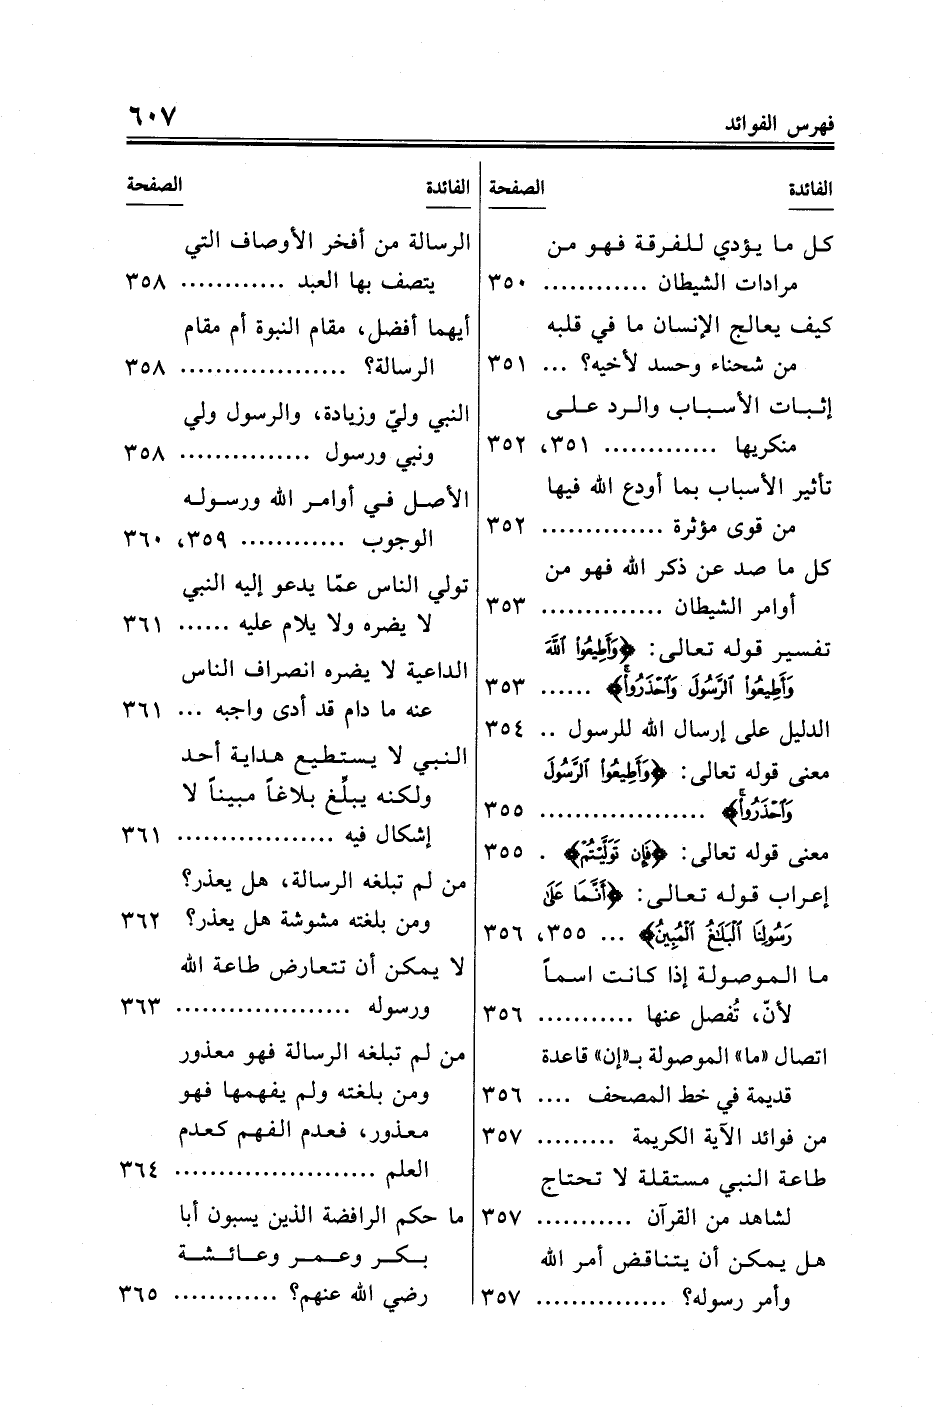 فهرس الفوائد ٦٠٧
الفائدة الصفحة
كل ما يؤدي للفرقة فهو من
مرادات الشيطان ............ ٣٥٠
كيف يعالج الإنسان ما في قلبه
من شحناء وحسد لأخيه؟ ... ٣٥١
إثبات الأسباب والرد على
منكريها ............. ٣٥١، ٣٥٢
تأثير الأسباب بما أودع الله فيها
من قوى مؤثرة .............. ٣٥٢
كل ما صد عن ذكر الله فهو من
أوامر الشيطان .............. ٣٥٣
تفسير قوله تعالى: ﴿وَأَطِيعُوا۟ ٱللَّهَ
وَأَطِيعُوا۟ ٱلرَّسُولَ وَٱحْذَرُوا۟ۚ﴾ ...... ٣٥٣
الدليل على إرسال الله للرسول .. ٣٥٤
معنى قوله تعالى: ﴿وَأَطِيعُوا۟ ٱلرَّسُولَ
وَٱحْذَرُوا۟ۚ﴾ ................... ٣٥٥
معنى قوله تعالى: ﴿فَإِن تَوَلَّيْتُمْ﴾ . ٣٥٥
إعراب قوله تعالى: ﴿أَنَّمَا عَلَىٰ
رَسُولِنَا ٱلْبَلَٰغُ ٱلْمُبِينُ﴾ ... ٣٥٥، ٣٥٦
ما الموصولة إذا كانت اسماً
لأنّ، تُفصل عنها ........... ٣٥٦
اتصال «ما» الموصولة بـ«إن» قاعدة
قديمة في خط المصحف .... ٣٥٦
من فوائد الآية الكريمة ......... ٣٥٧
طاعة النبي مستقلة لا تحتاج
لشاهد من القرآن ........... ٣٥٧
هل يمكن أن يتناقض أمر الله
وأمر رسوله؟ ............... ٣٥٧
الفائدة الصفحة
الرسالة من أفخر الأوصاف التي
يتصف بها العبد ............ ٣٥٨
أيهما أفضل، مقام النبوة أم مقام
الرسالة؟ ................... ٣٥٨
النبي وليّ وزيادة، والرسول ولي
ونبي ورسول ............... ٣٥٨
الأصل في أوامر الله ورسوله
الوجوب ............ ٣٥٩، ٣٦٠
تولي الناس عمّا يدعو إليه النبي
لا يضره ولا يلام عليه ...... ٣٦١
الداعية لا يضره انصراف الناس
عنه ما دام قد أدى واجبه ... ٣٦١
النبي لا يستطيع هداية أحد
ولكنه يبلِّغ بلاغاً مبيناً لا
إشكال فيه .................. ٣٦١
من لم تبلغه الرسالة، هل يعذر؟
ومن بلغته مشوشة هل يعذر؟ ٣٦٢
لا يمكن أن تتعارض طاعة الله
ورسوله .................... ٣٦٣
من لم تبلغه الرسالة فهو معذور
ومن بلغته ولم يفهمها فهو
معذور، فعدم الفهم كعدم
العلم ....................... ٣٦٤
ما حكم الرافضة الذين يسبون أبا
بكر وعمر وعائشة
رضي الله عنهم؟ ............ ٣٦٥